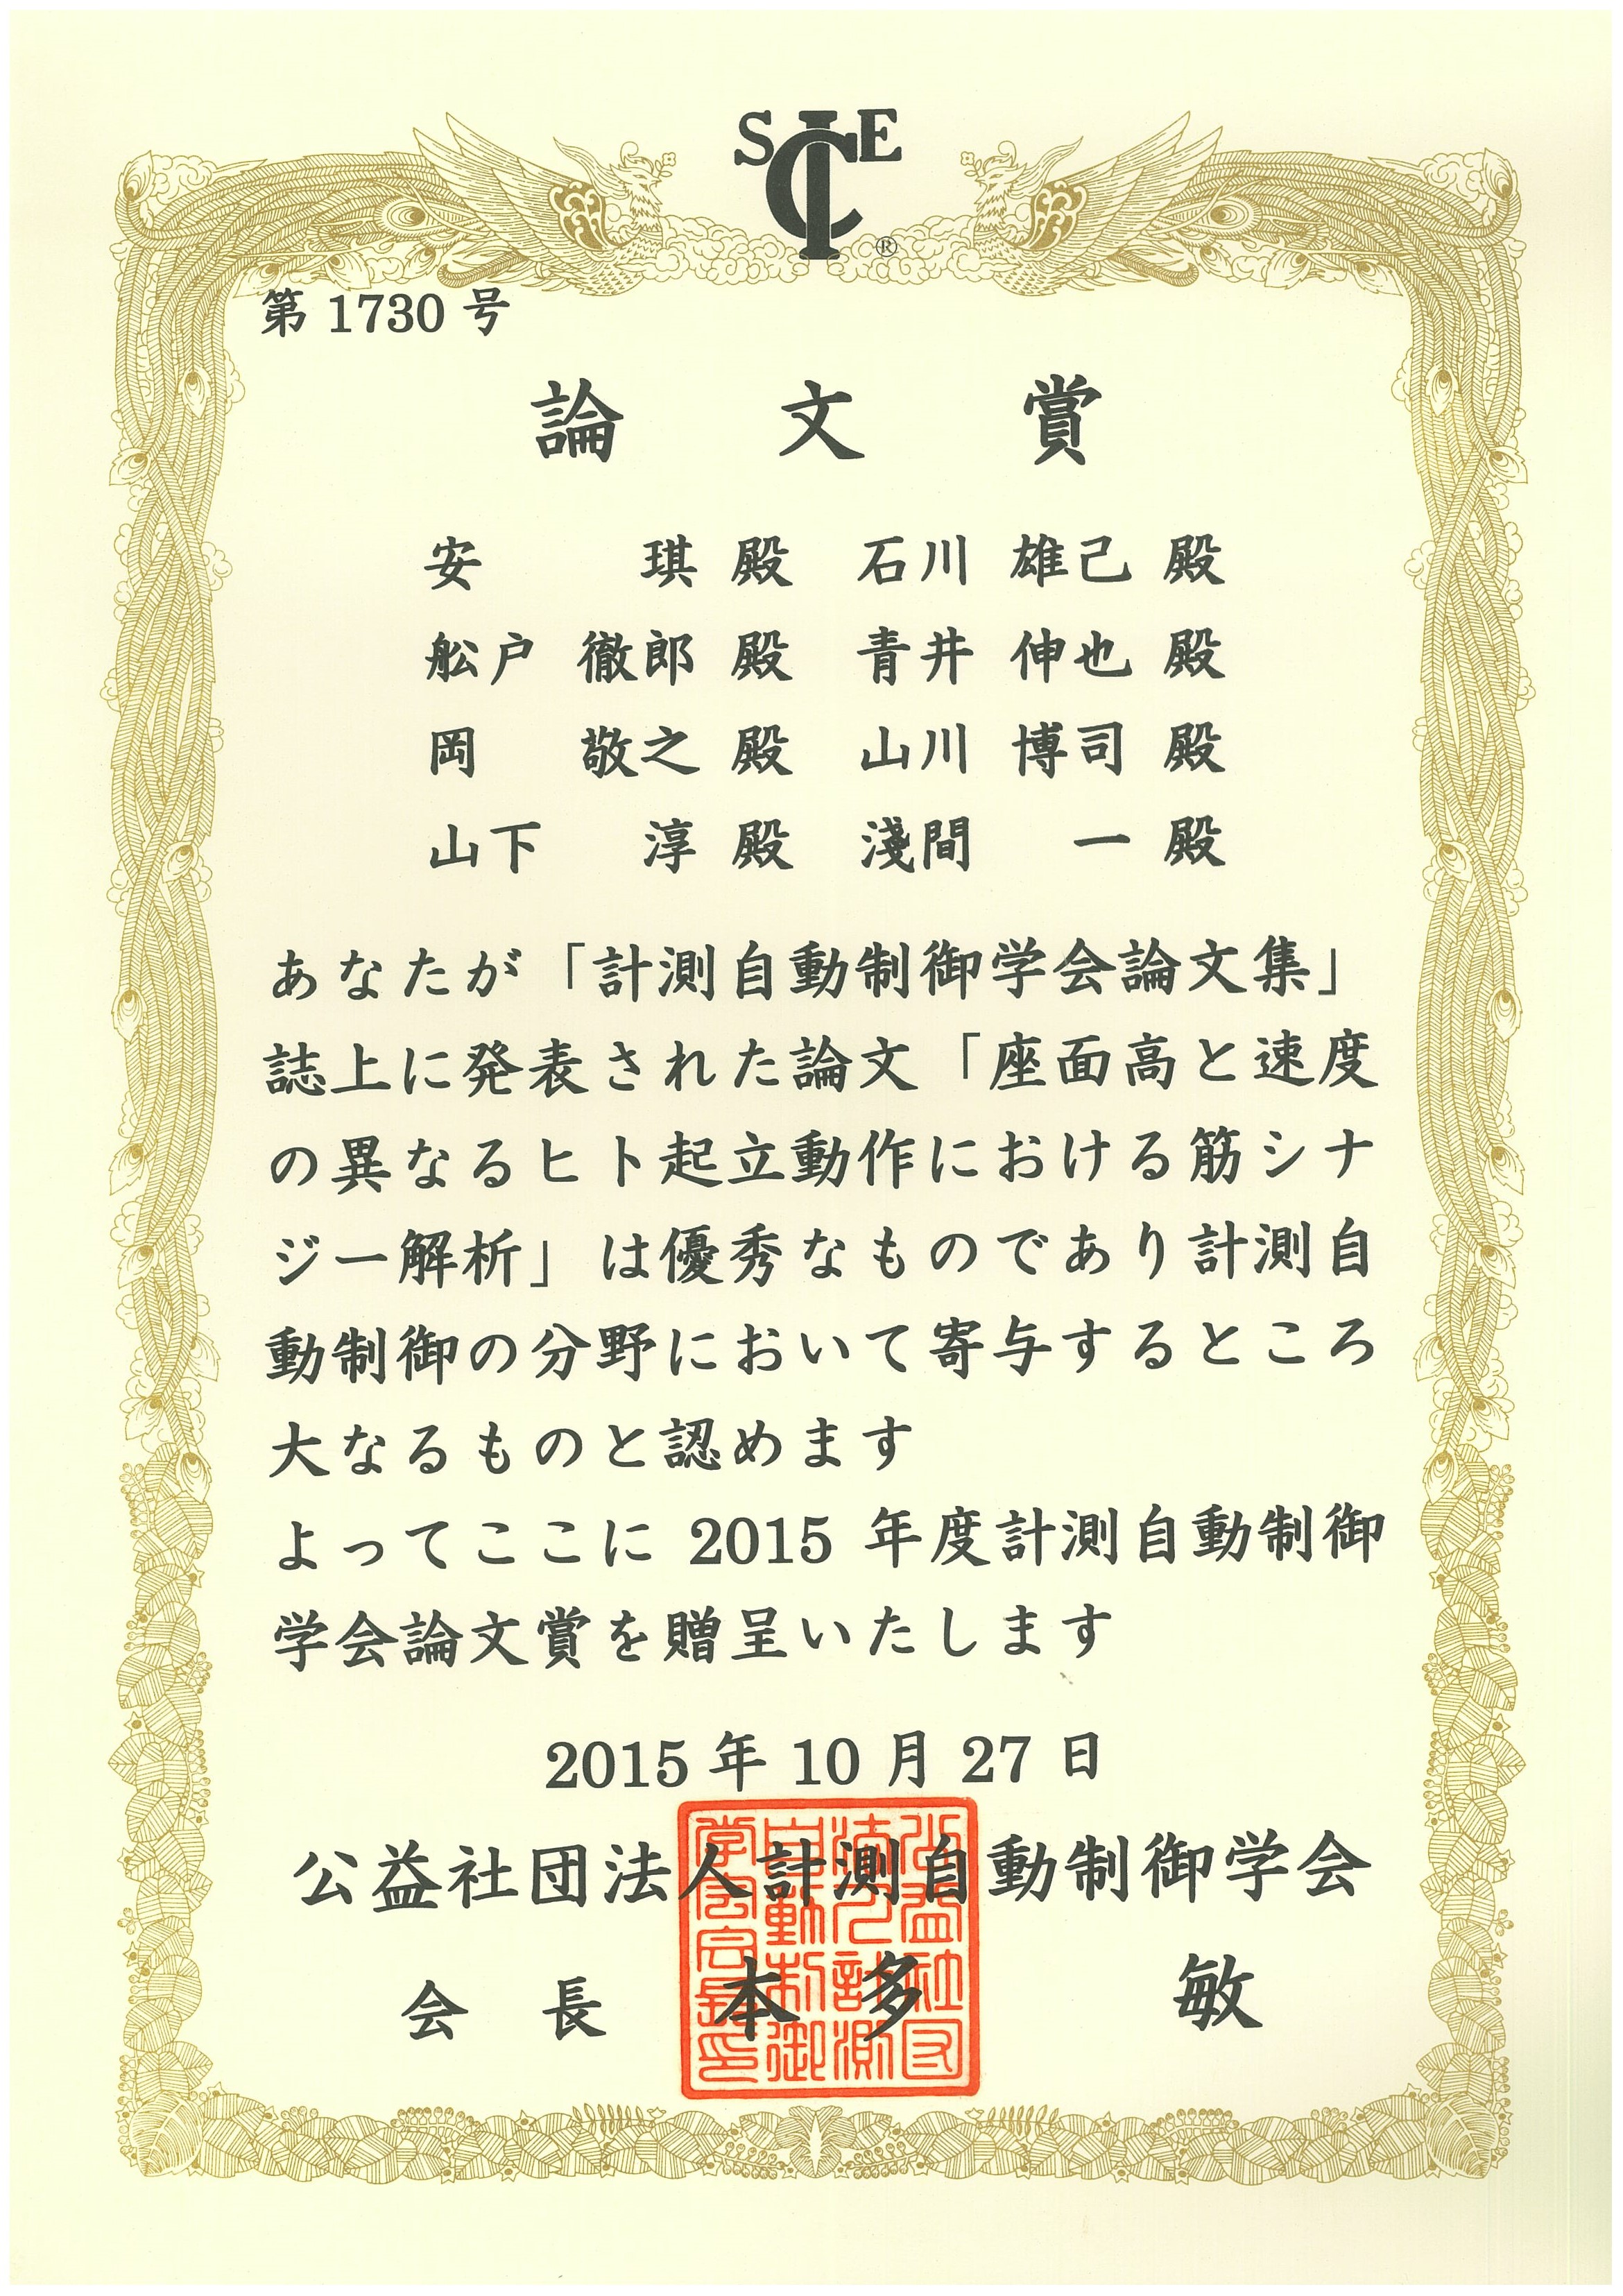 SICE®
第 1730 号
論 文 賞
安 琪 殿 石川 雄己 殿
舩戸 徹郎 殿 青井 伸也 殿
岡 敬之 殿 山川 博司 殿
山下 淳 殿 淺間 一 殿
あなたが「計測自動制御学会論文集」
誌上に発表された論文「座面高と速度
の異なるヒト起立動作における筋シナ
ジー解析」は優秀なものであり計測自
動制御の分野において寄与するところ
大なるものと認めます
よってここに 2015 年度計測自動制御
学会論文賞を贈呈いたします
2015 年 10 月 27 日
公益社団法人計測自動制御学会
会 長 本 多 敏
公益社団
法人計測
自動制御
学会会長印